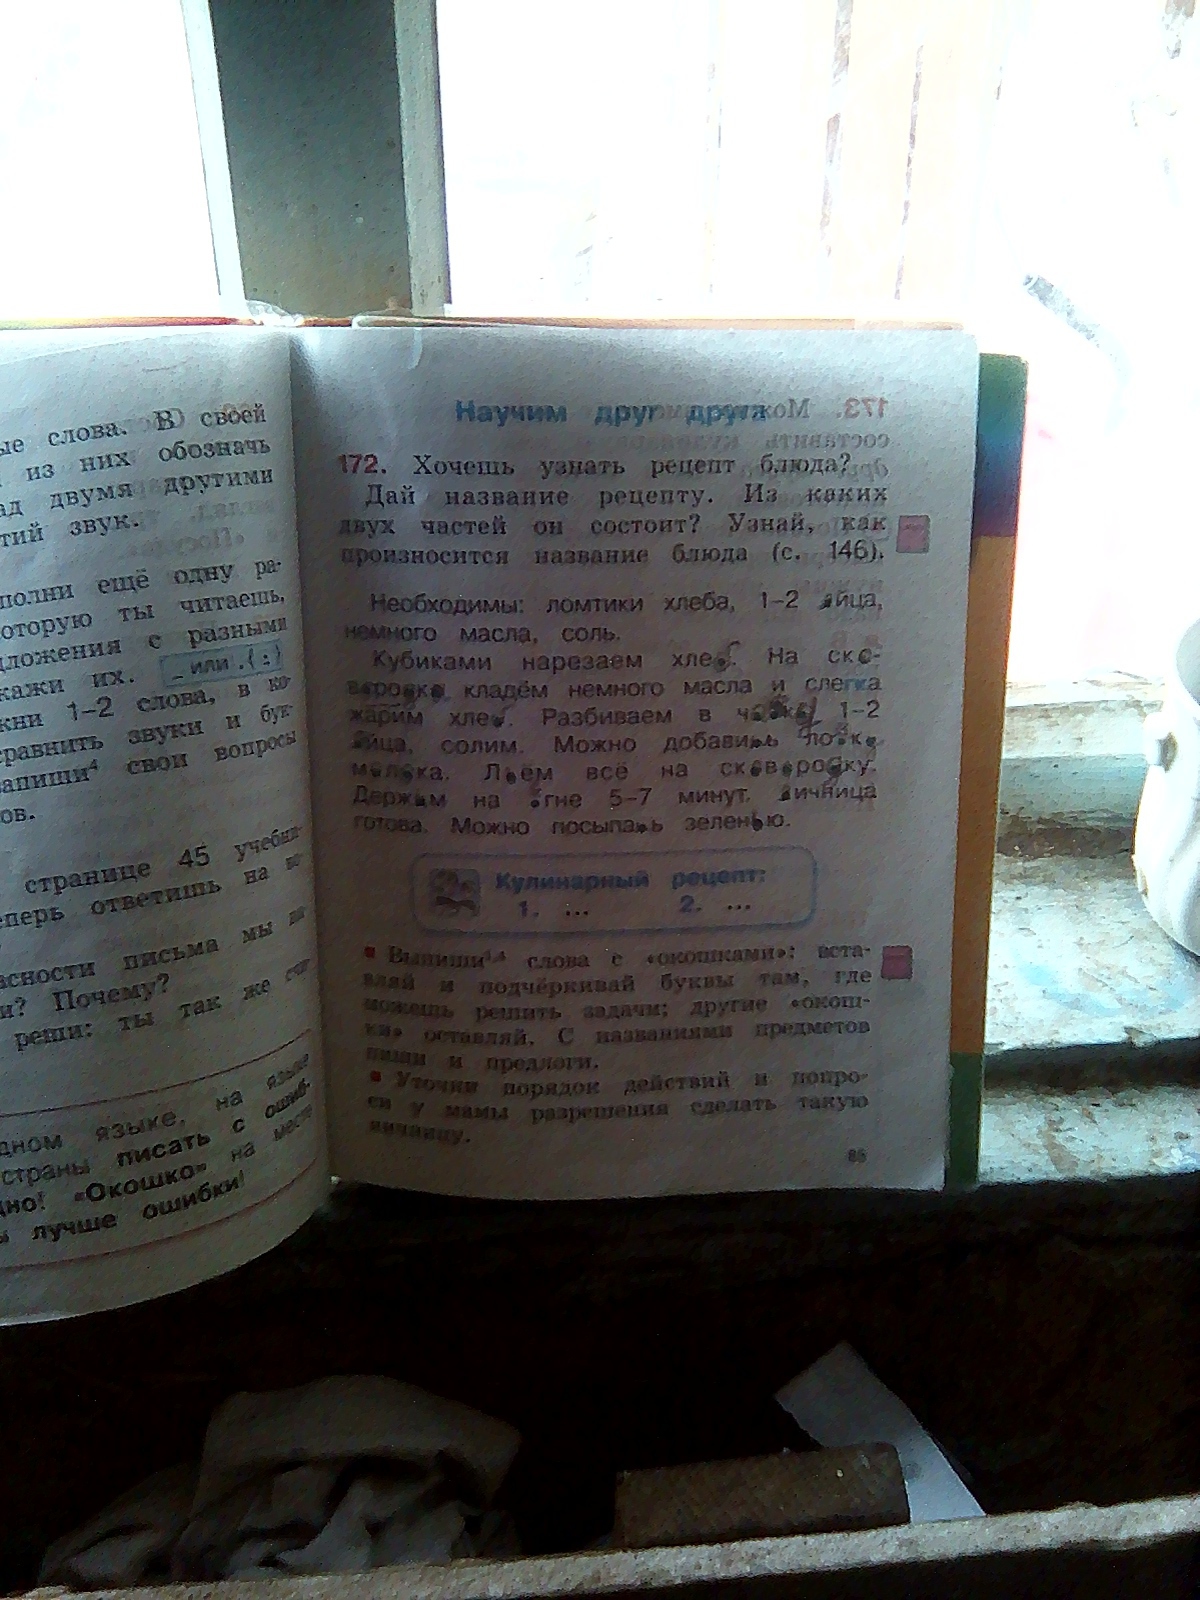 ые слова. В своей
из них обозначь
ад двумя другими
тий звук.
полни ещё одну ра-
оторую ты читаешь,
дложения с разными
кажи их. _ или .(:)
кни 1–2 слова, в ко-
сравнить звуки и бук-
запиши⁴ свои вопросы
ов.
странице 45 учебни-
еперь ответишь на во-
асности письма мы
и? Почему?
реши: ты так же
дном языке, на языке
страны писать с ошиб-
дно! «Окошко» на месте
ы лучше ошибки!
Научим друг друга
172. Хочешь узнать рецепт блюда?
Дай название рецепту. Из каких
двух частей он состоит? Узнай, как
произносится название блюда (с. 146).
Необходимы: ломтики хлеба, 1–2 яйца,
немного масла, соль.
Кубиками нарезаем хлеб. На ско-
вородку кладём немного масла и слегка
жарим хлеб. Разбиваем в 1–2
яйца, солим. Можно добавить
молока. Льём всё на сковородку.
Держим на огне 5–7 минут. Яичница
готова. Можно посыпать зеленью.
Кулинарный рецепт:
1. ... 2. ...
Выпиши¹,⁴ слова с «окошками»: вста-
вляй и подчёркивай буквы там, где
можешь решить задачи; другие «окош-
ки» оставляй. С названиями предметов
пиши и предлоги.
Уточни порядок действий и попро-
си у мамы разрешения сделать такую
яичницу.
85